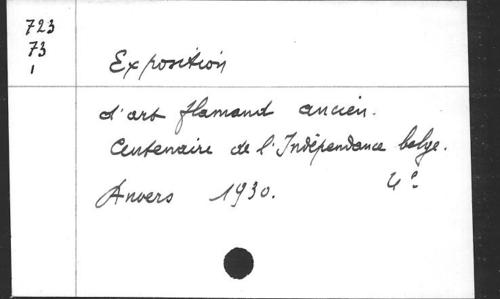 723
73
1
Exposition
d'art flamand ancien.
Centenaire de l'Indépendance belge.
Anvers 1930. 4°.